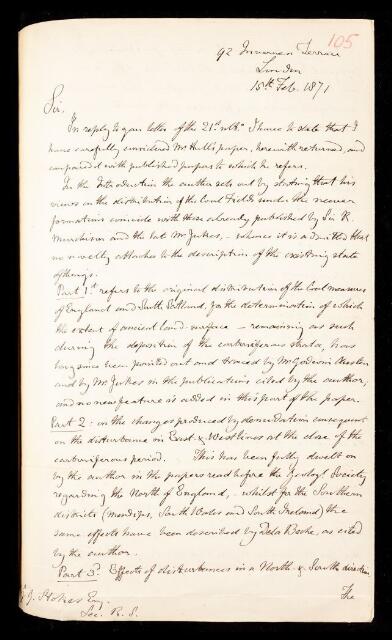 105
92 Inverness Terrace
London
15th Feb. 1871
Sir,
In reply to your letter of the 21st ulto I have to state that I
have carefully considered Mr Hull's paper, herewith returned, and
compared it with published papers to which he refers.
In the Introduction the author sets out by stating that his
views on the distribution of the Coal Fields under the newer
formations coincide with those already published by Sir R.
Murchison and the late Mr Jukes, - whence it is admitted that
no novelty attaches to the description of the existing state
of things.
Part 1st refers to the original distribution of the Coal measures
of England and South Scotland, for the determination of which
the extent of ancient land surface - remaining as such
during the deposition of the carboniferous strata, has
long since been pointed out and traced by Mr Godwin Austen
and by Mr Jukes in the publications cited by the author;
and no new feature is added in this part of the paper.
Part 2 - on the changes produced by denudation consequent
on the disturbance in East & West lines at the close of the
carboniferous period. This has been fully dwelt on
by the author in the papers read before the Geologl Society
regarding the North of England, - whilst for the Southern
districts (Mendips, South Wales and South Ireland) the
same effects have been described by De la Beche, as cited
by the author.
Part 3. Effects of disturbances in a North & South direction.
The
G. Stokes Esq.
Sec. R. S.